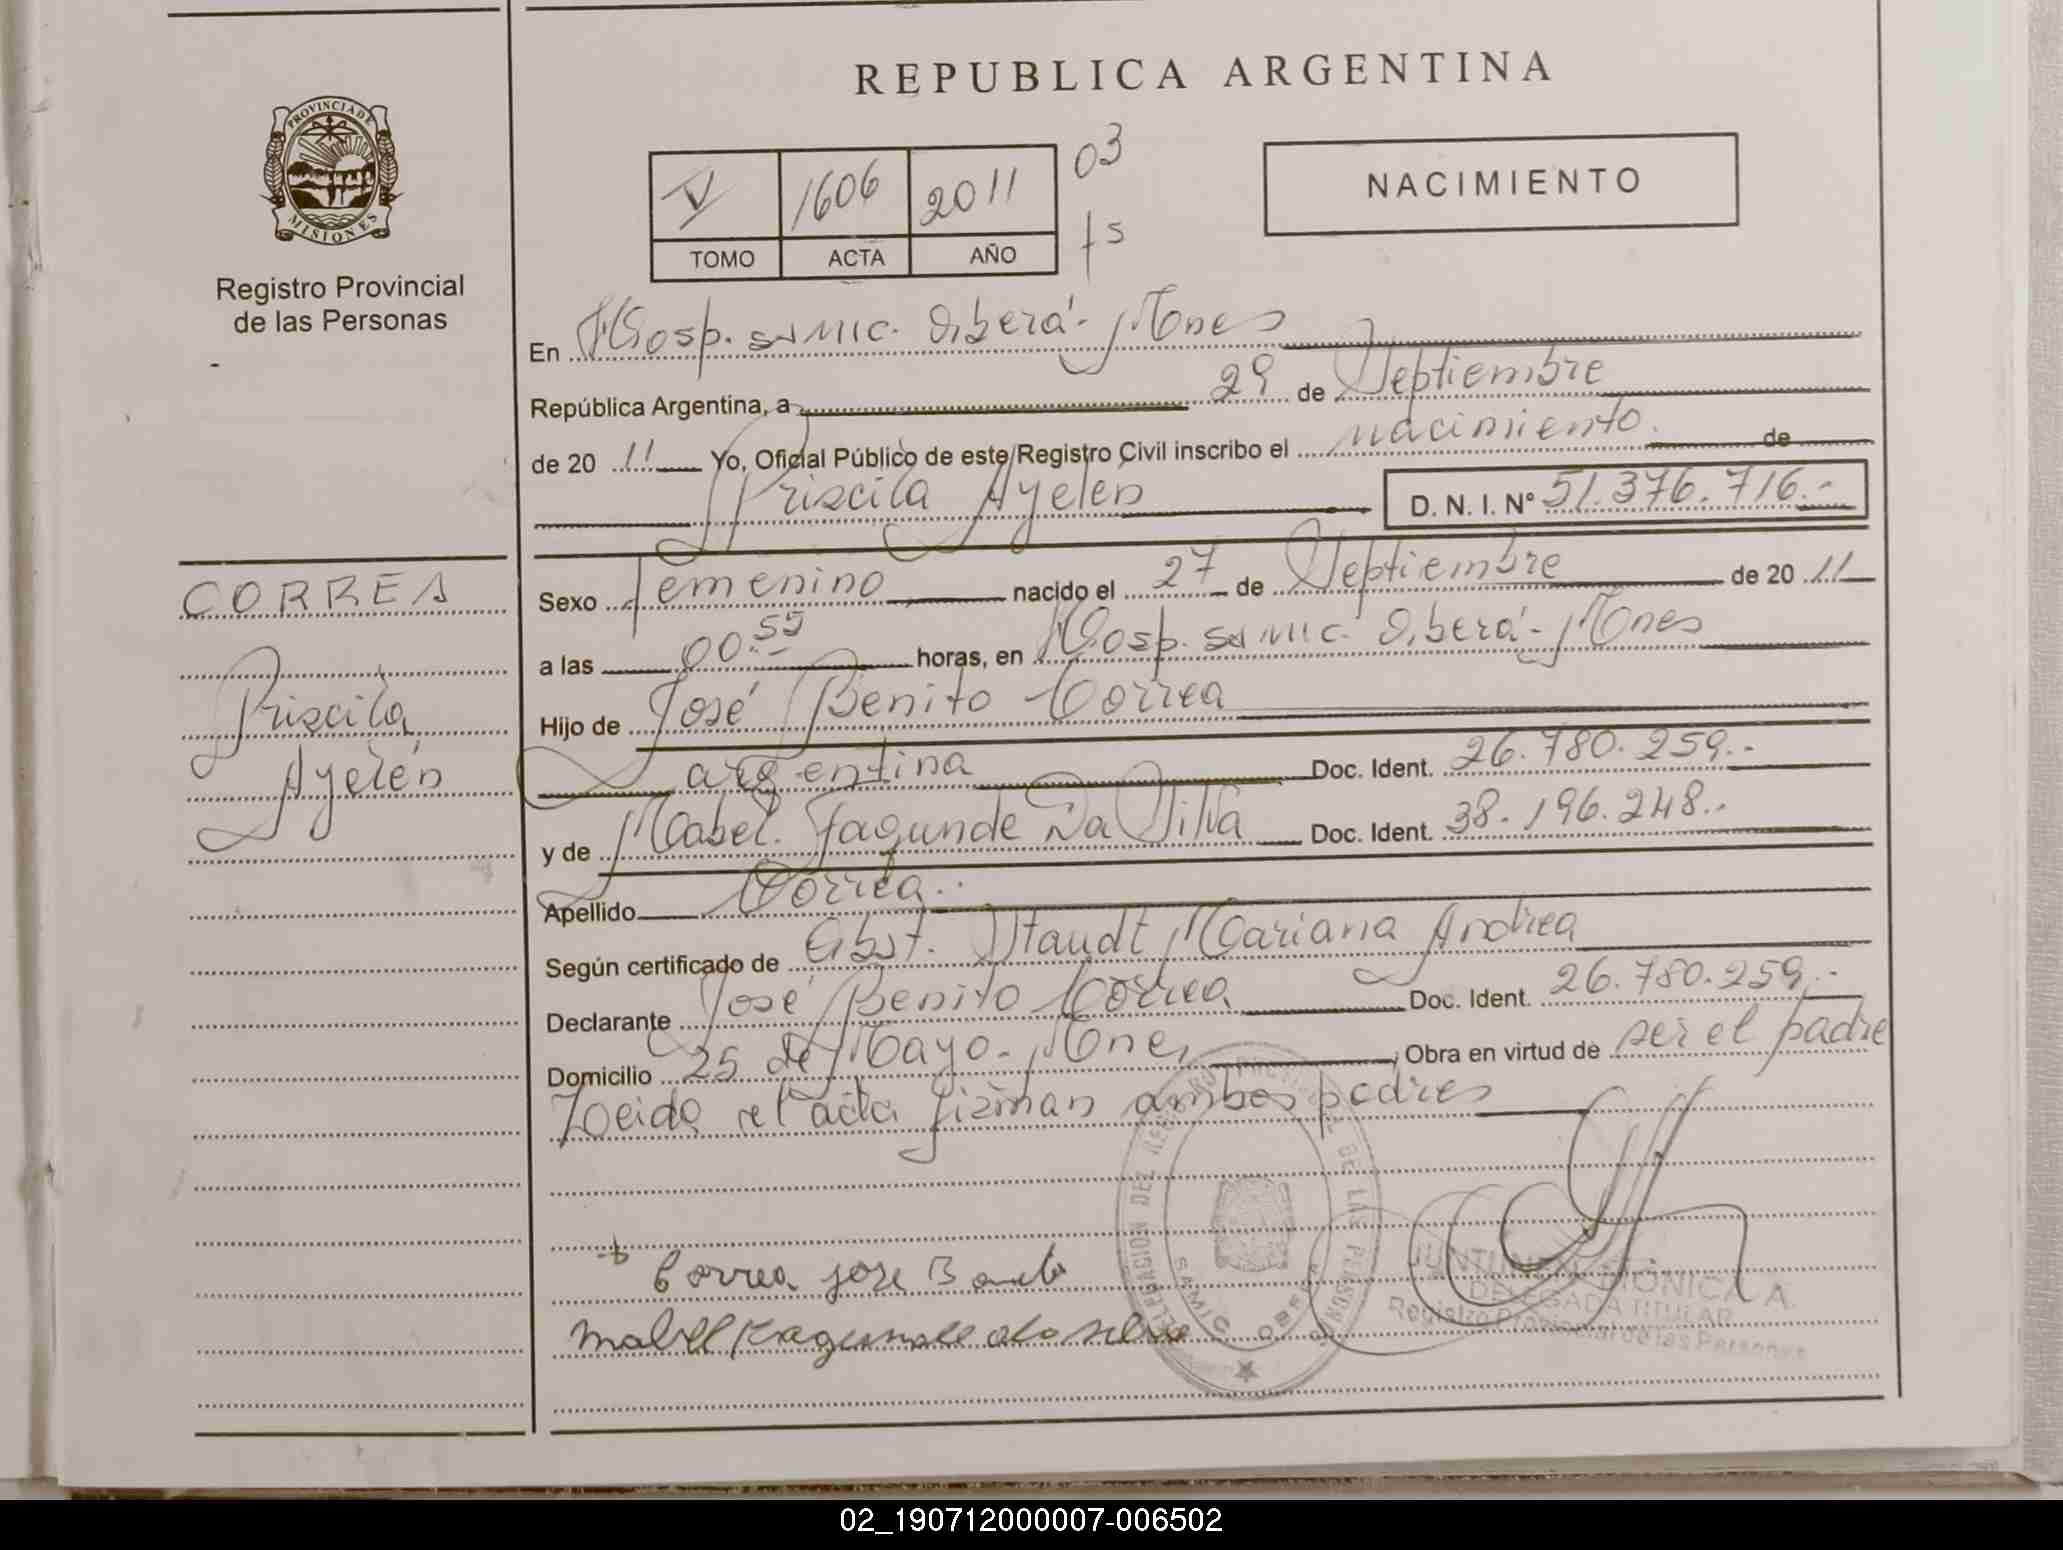 REPUBLICA ARGENTINA
PROVINCIA DE
MISIONES
Registro Provincial
de las Personas
V 1606 2011 03
TOMO ACTA AÑO fs
NACIMIENTO
En Hosp. samic. Oberá - Mnes
República Argentina, a 29 de Septiembre
de 20 11 Yo, Oficial Público de este Registro Civil inscribo el nacimiento. de
Priscila Ayelen D. N. I. Nº 51.376.716.-
CORREA
Priscila
Ayelén
Sexo femenino nacido el 27 de Septiembre de 20 11
a las 00:55 horas, en Hosp. samic. Oberá - Mnes
Hijo de José Benito Correa
argentina Doc. Ident. 26.780.259.-
y de Mabel. Fagunde Da Silva Doc. Ident. 38.196.248.-
Apellido Correa..
Según certificado de Obst. Staudt Mariana Andrea
Declarante José Benito Correa Doc. Ident. 26.780.259.-
Domicilio 25 de Mayo - Mnes, Obra en virtud de ser el padre
Leida el acta firman ambos padres
Correa jose Benito
Mabel Fagunde da silva
DELEGACION DEL REGISTRO PROVINCIAL DE LAS PERSONAS
SAMIC OBERA
MONICA A.
DELEGADA TITULAR
Registro Provincial de las Personas
02_190712000007-006502